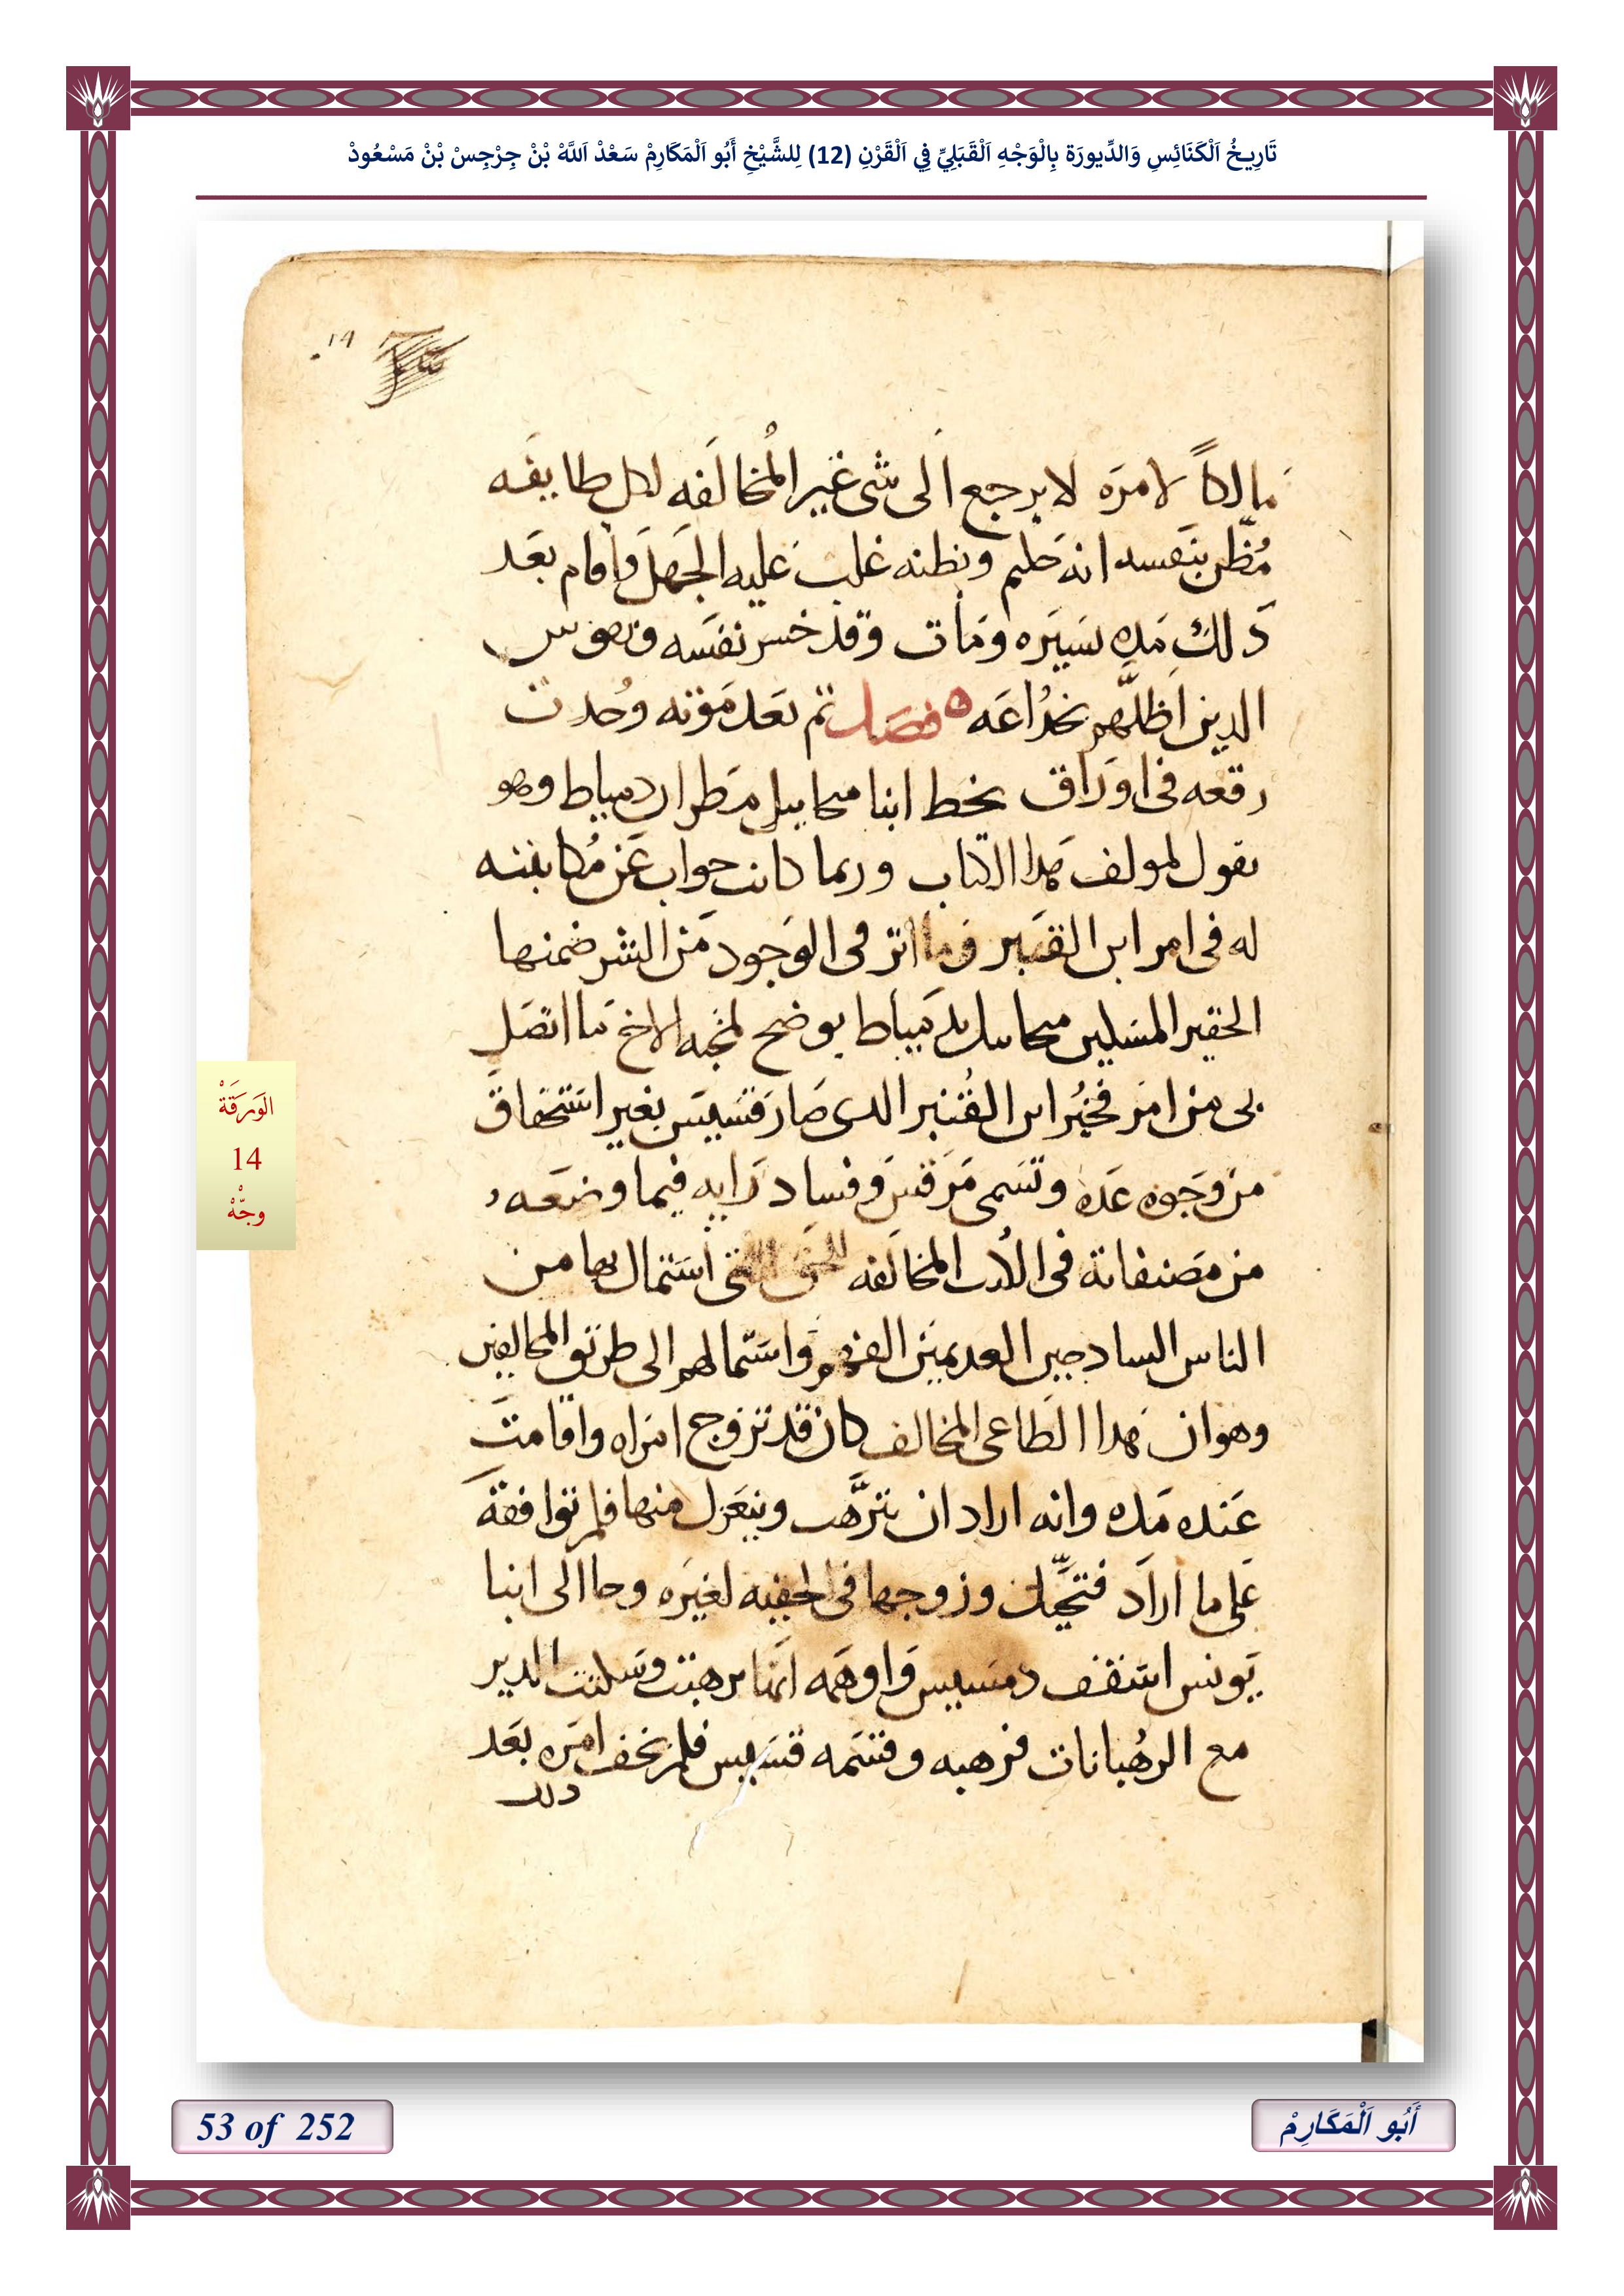 تَارِيخُ اَلْكَنَائِسِ وَالدِّيورَة بِالْوَجْهِ اَلْقَبَلِيِّ فِي اَلْقَرْنِ (12) لِلشَّيْخِ أَبُو اَلْمَكَارِمْ سَعْدْ اَللَّهْ بْنْ جِرْجِسْ بْنْ مَسْعُودْ
١٤
مالكاً لامرَه لا يرجع الى شى غير المُخالَفه لكل طايفه
مُظن بنَفسه انه حَليم وبظنه غلبَ عَليه الجَهل وأقام بعَد
دَلك مَده يسَيَره ومَات وقد خسر نفسَه وهو س
الدين اظلّهم بخدُاعَه ه فصَل تم بَعد مَوته وُجدت
رقعَه فى اورَاق بخط ابنا ميحاييل مَطران دمياط وهو
يقول لمولف هَدا الكتاب وربما كانت جواب عَن مُكاتبته
له فى امر ابن القنبَر وما اتر فى الوَجود مَن الشر ضمنها
الحقير المسَكين ميحاييل بدَمياط يوضح لمحبه الاخ مَا اتصَل
بى من امَر فخبُر ابن القُنبر الدى صَار قسَيسَ بغير استحقاق
من وجَوه عَده وتسَمى مَرقسَ وفسَاد رَايه فيما وضعَه
من مَصنفاته فى الكتب المخالَفه للحق التى اسَتمال بها من
الناس السادجين العديمَين الفهم وَاسَتمالهم الى طريق المخالفين
وهو ان هَدا الطَاعى المخالف كان قد تزوج امَراه واقامتَ
عَنده مَده وانه اراد ان يترّهَب وينعَزل منها فلم توافقهَ
عَلى ما ارادَ فتحيّل وزوجها فى الخفيه لغيرَه وجا الى ابنا
يَونس اسَقف دمسَيس وَاوهَمه انهَا ترهبتَ وسَكنت الدير
مع الرهُبانات فرهبه وقسَمه قسَيس فلم يخف امَره بعَد
دلك
الوَرَقَةْ
14
وجّهْ
53 of 252
أَبُو اَلْمَكَارِمْ